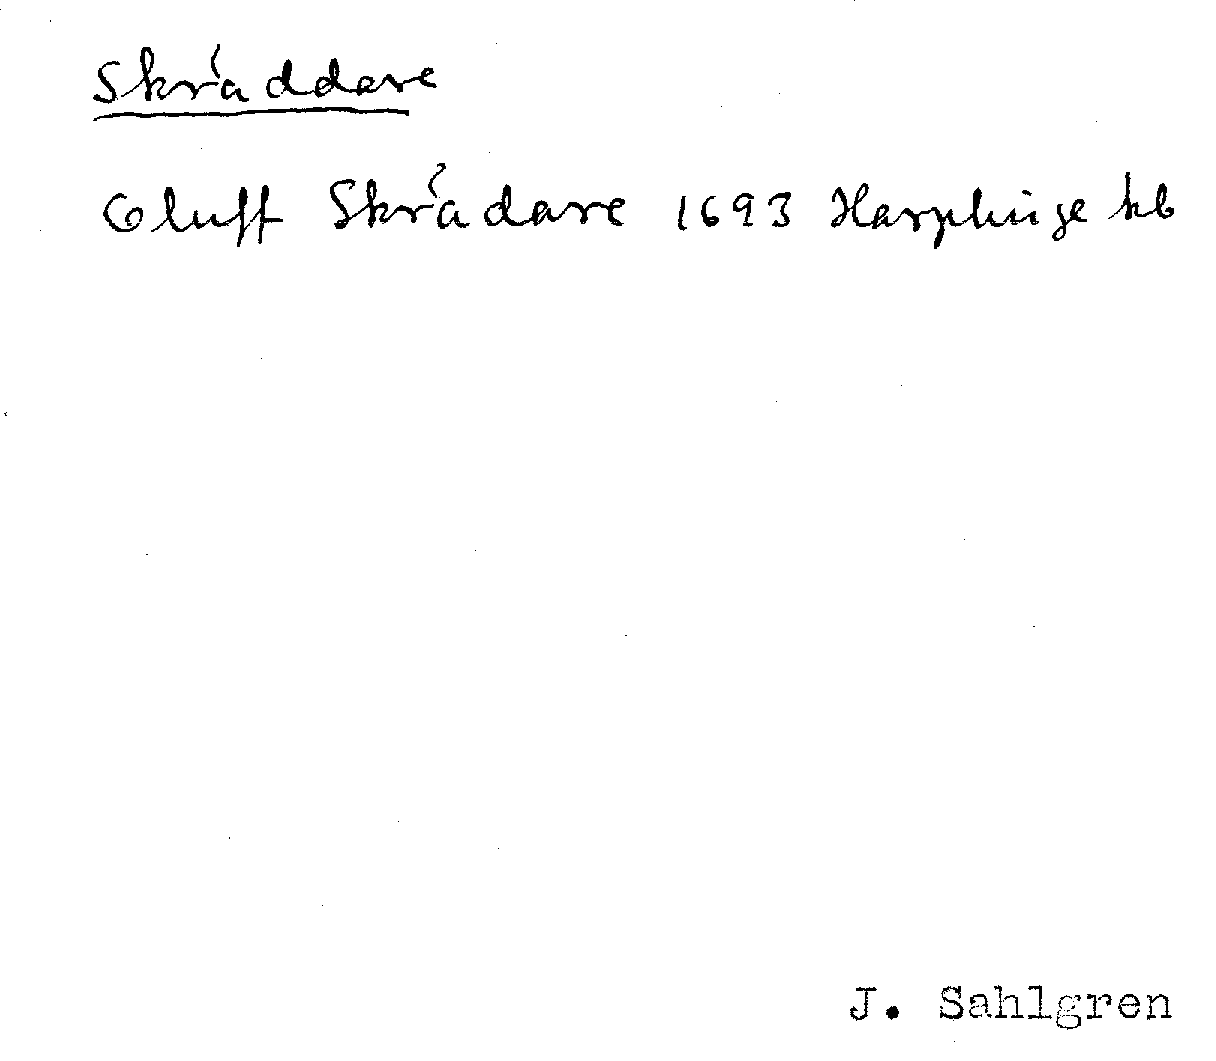 Skräddare
Oluff Skrädare 1693 Harplinge kb
J. Sahlgren